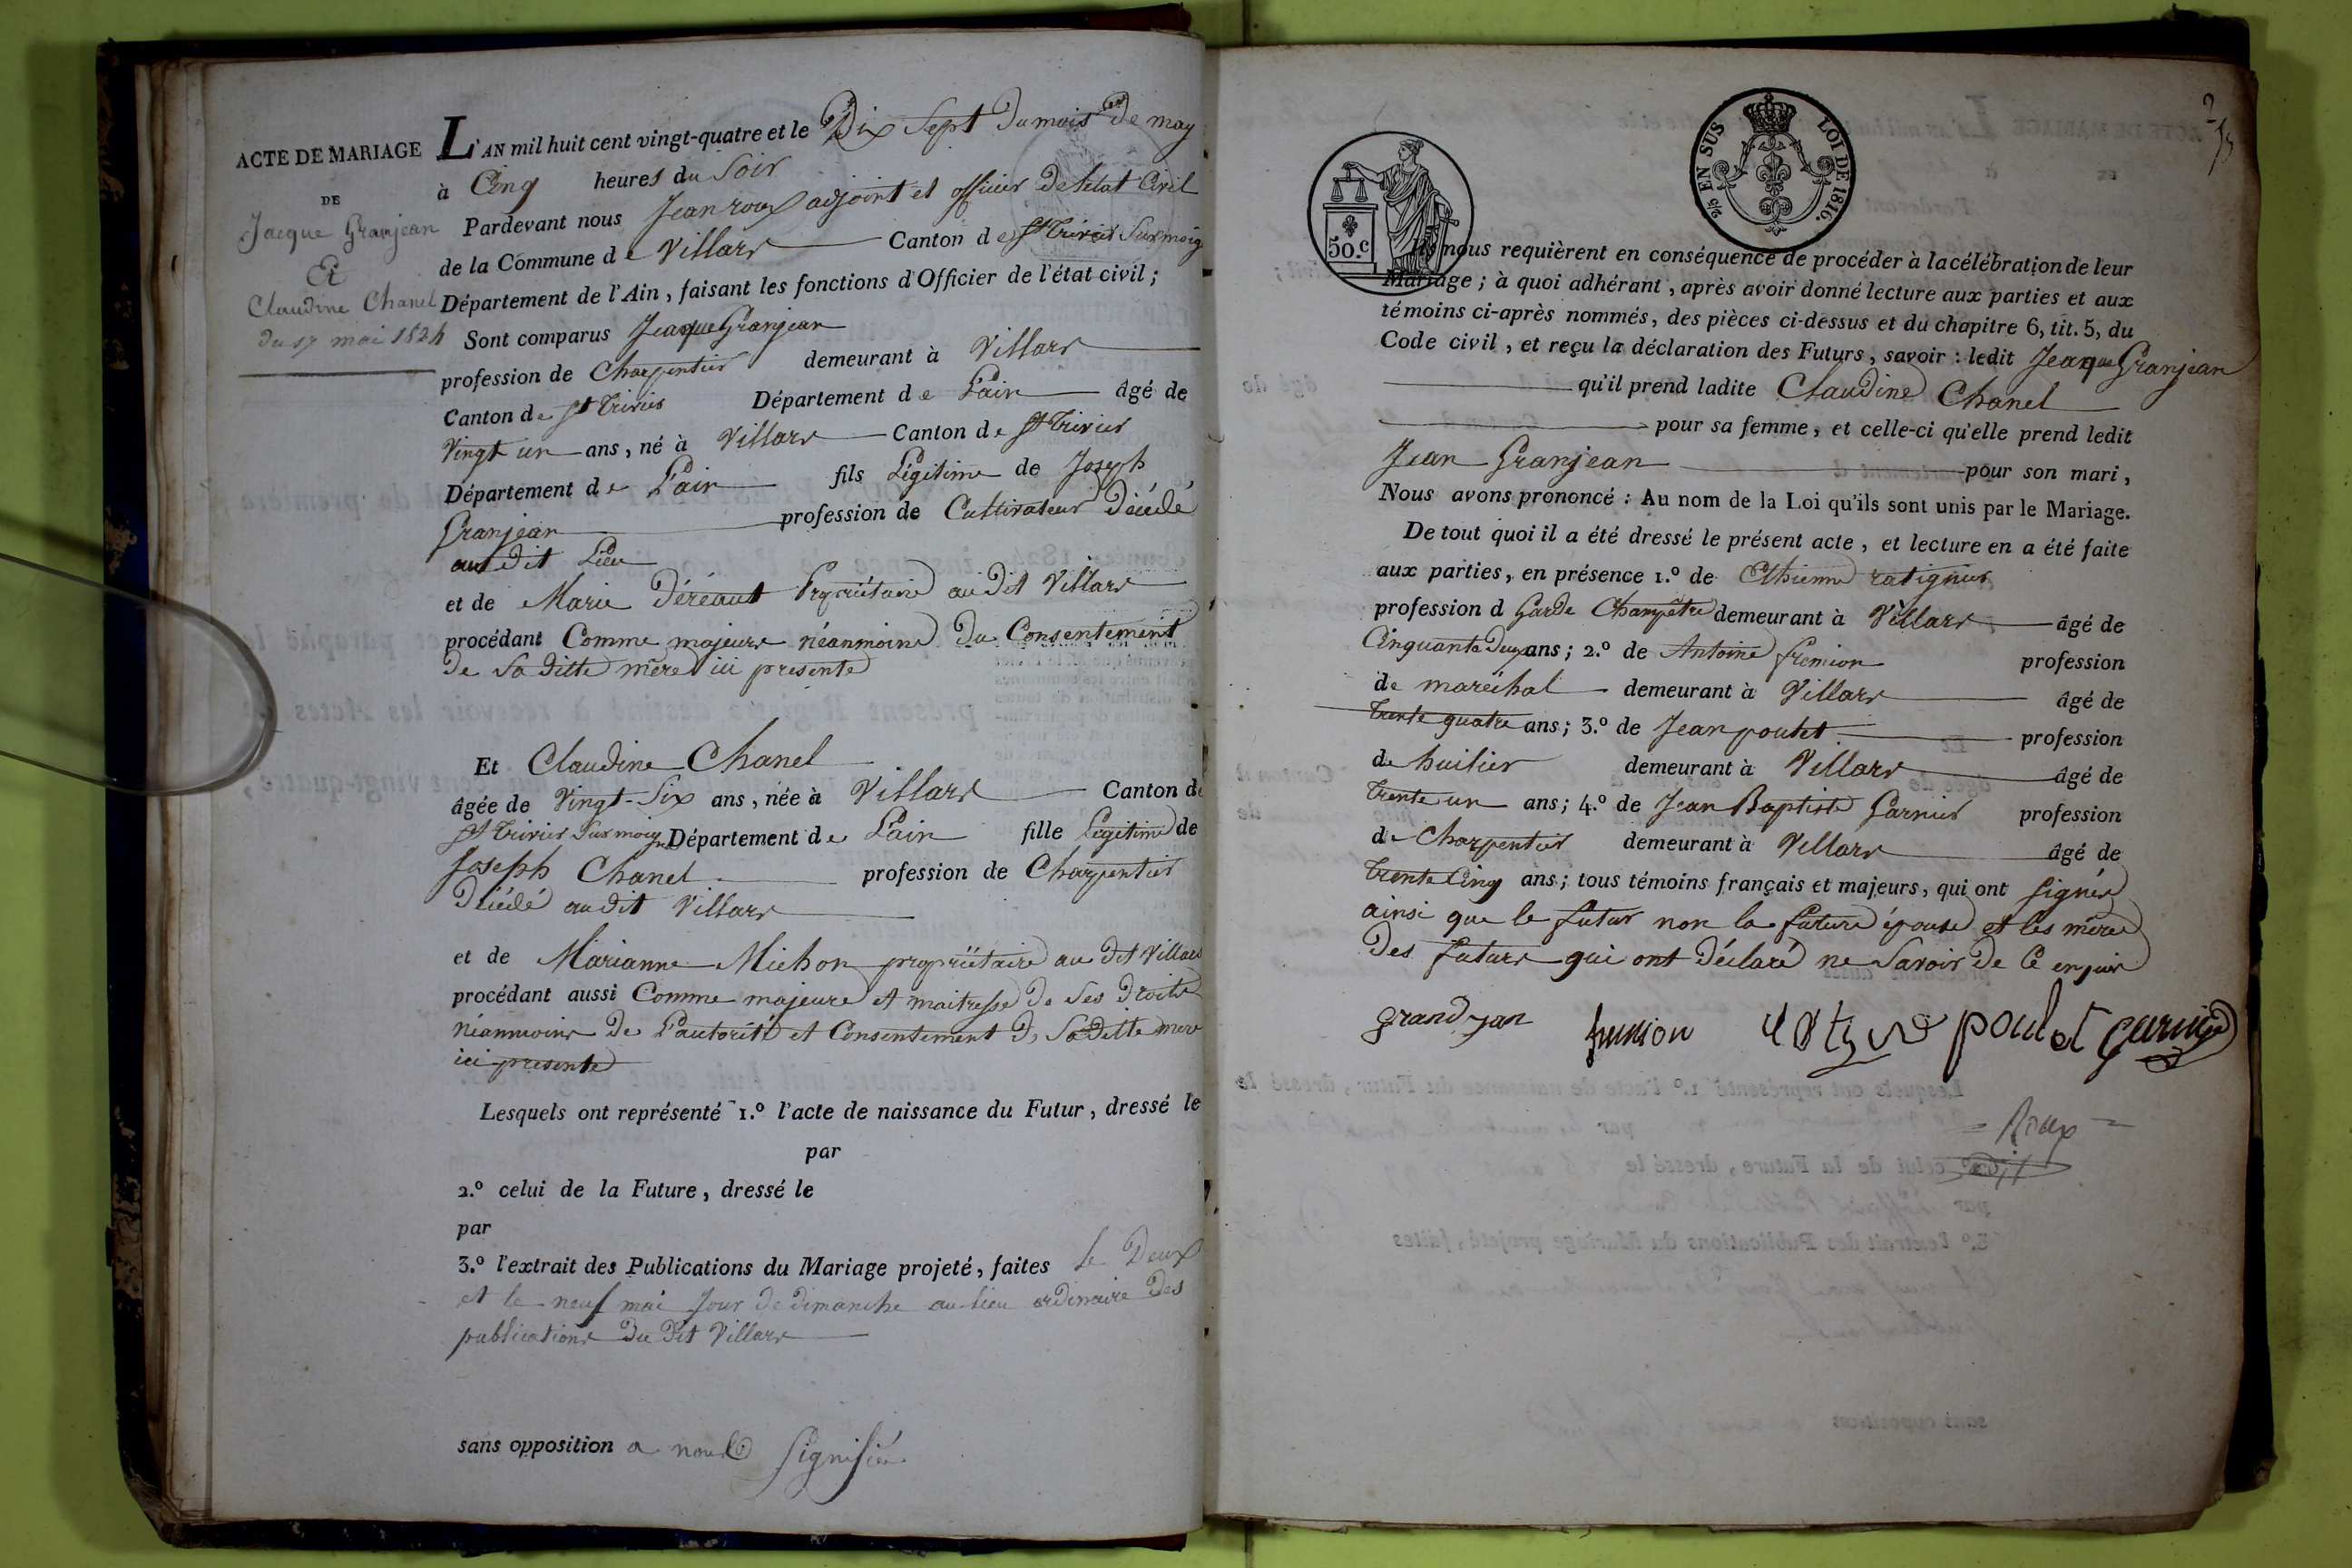 ACTE DE MARIAGE
DE
Jacque Granjean
Et
Claudine Chanel
du 17 mai 1824
L'AN mil huit cent vingt-quatre et le Dix Sept du mois de may
à Cinq heures du Soir
Pardevant nous Jean roux adjoint et officier de letat Civil
de la Commune de Villars Canton de St Trivier Sur moig
Département de l'Ain, faisant les fonctions d'Officier de l'état civil;
Sont comparus Jeaque Granjean
profession de Charpentier demeurant à Villars
Canton de St Trivier Département de L'ain âgé de
Vingt un ans, né à Villars Canton de St Trivier
Département de L'ain fils Légitime de Joseph
Granjean profession de Cultivateur Décédé
audit Lieu
et de Marie Déréaut Propriétaire au Dit Villars
procédant Comme majeure néanmoins du Consentement
de Sa ditte mère ici presente
Et Claudine Chanel
âgée de Vingt-Six ans, née à Villars Canton de
St Trivier Sur moign Département de L'ain fille Légitime de
Joseph Chanel profession de Charpentier
Décédé au dit Villars
et de Marianne Michon propriétaire au dit Villars
procédant aussi Comme majeure et maitresse de Ses Droits
néanmoins de L'autorité et Consentement de Sa ditte mere
ici presente
Lesquels ont représenté 1.º l'acte de naissance du Futur, dressé le
par
2.º celui de la Future, dressé le
par
3.º l'extrait des Publications du Mariage projeté, faites le Deux
et le neuf mai Jour de dimanche au lieu ordinaire des
publications du dit Villars
sans opposition a nous Signifiée
2/5 EN SUS LOI DE 1816.
50.c
Ils nous requièrent en conséquence de procéder à la célébration de leur
Mariage; à quoi adhérant, après avoir donné lecture aux parties et aux
témoins ci-après nommés, des pièces ci-dessus et du chapitre 6, tit. 5, du
Code civil, et reçu la déclaration des Futurs, savoir: ledit Jeaque Granjean
qu'il prend ladite Claudine Chanel
pour sa femme, et celle-ci qu'elle prend ledit
Jean Granjean pour son mari,
Nous avons prononcé: Au nom de la Loi qu'ils sont unis par le Mariage.
De tout quoi il a été dressé le présent acte, et lecture en a été faite
aux parties, en présence 1.º de Ethienne ratignier
profession d Garde Champêtre demeurant à Villars âgé de
Cinquante Deux ans; 2.º de Antoine fremion profession
de maréchal demeurant à Villars âgé de
Trente quatre ans; 3.º de Jean poulet profession
de huilier demeurant à Villars âgé de
Trente un ans; 4.º de Jean Baptiste Garnier profession
de Charpentier demeurant à Villars âgé de
Trente Cinq ans; tous témoins français et majeurs, qui ont Signés
ainsi que le futur non la future épouse et les mères
Des futurs qui ont déclaré ne Savoir de Ce enquis
grandjan fremion poulet garnier
Roux